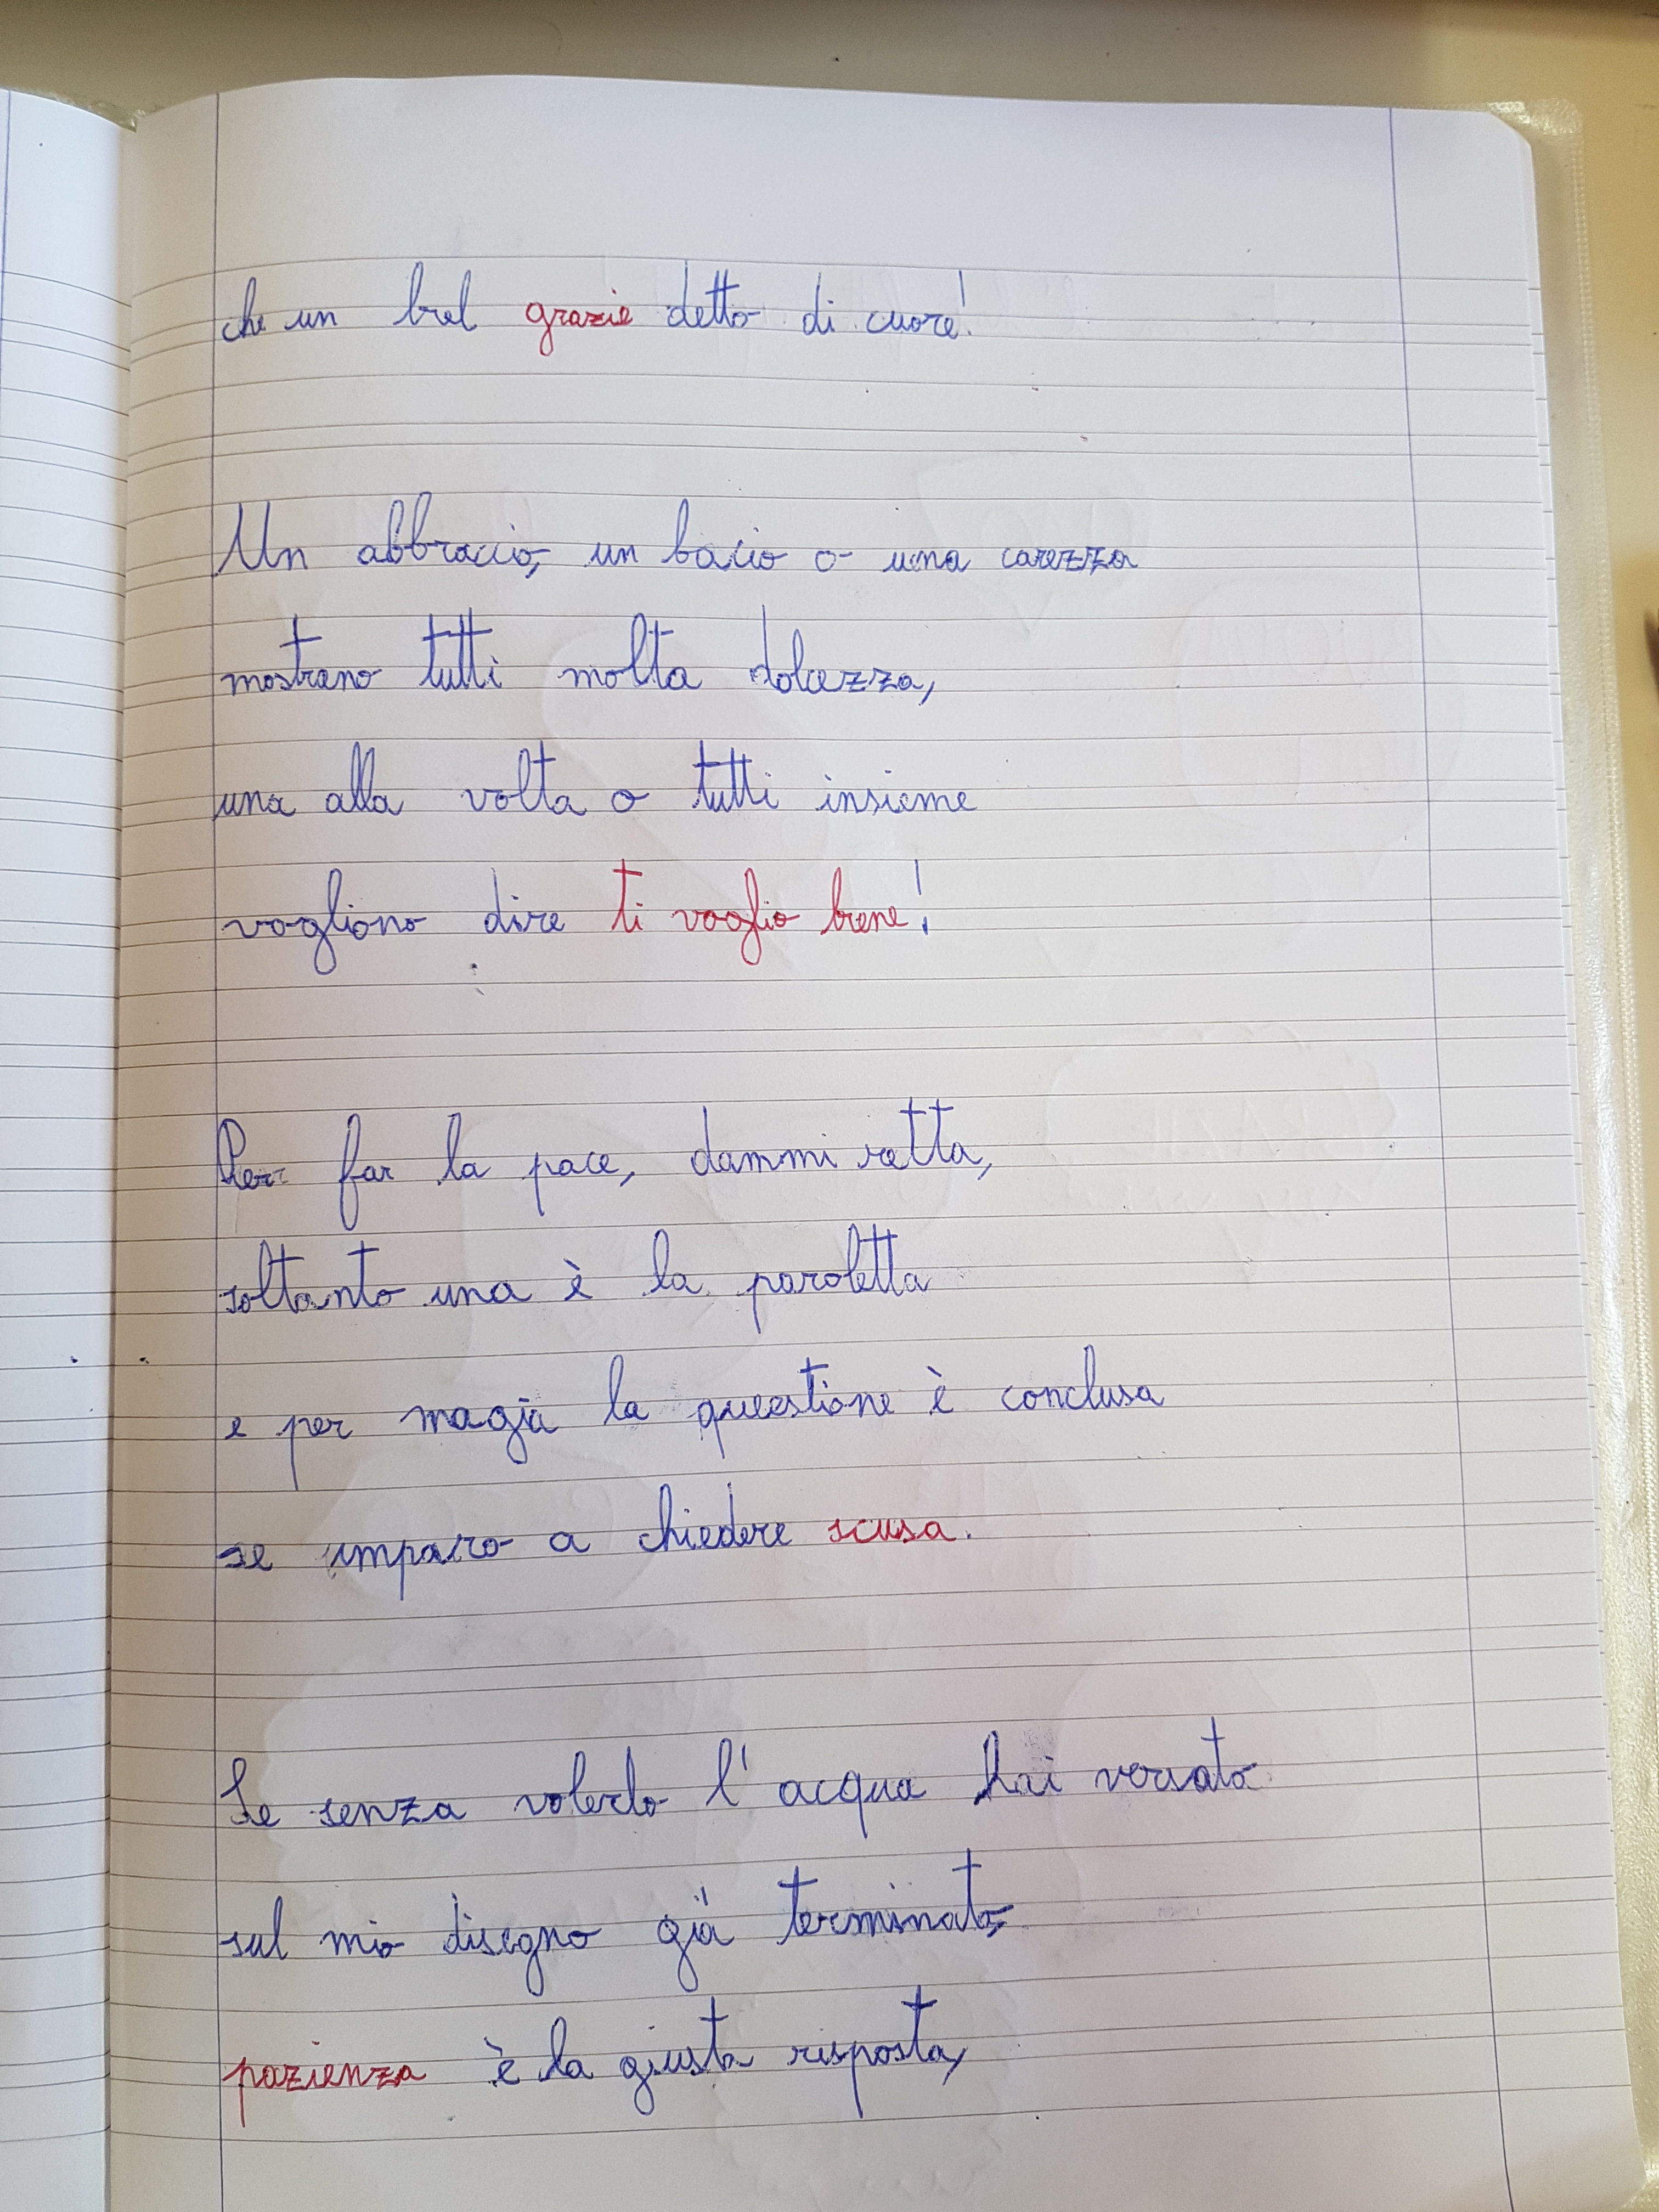 che un bel grazie detto di cuore!
Un abbraccio, un bacio o una carezza
mostrano tutti molta dolcezza,
una alla volta o tutti insieme
vogliono dire ti voglio bene!
Per far la pace, dammi retta,
soltanto una è la paroletta
e per magia la questione è conclusa
se imparo a chiedere scusa.
Se senza volerlo l'acqua hai versato
sul mio disegno già terminato,
pazienza è la giusta risposta,